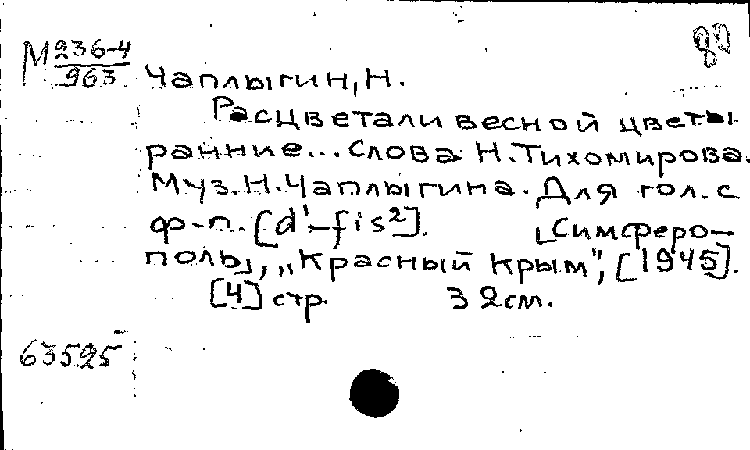 М 236-4
963
80
Чаплыгин, Н.
Расцветали весной цветы
ранние... Слова Н. Тихомирова.
Муз. Н. Чаплыгина. Для гол. с
ф-п. [d¹-fis²]. [Симферо-
поль], "Красный Крым", [1945].
[4] стр. 32см.
63525